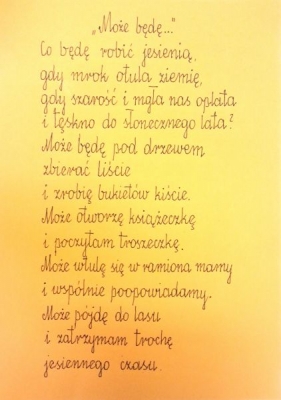 „Może będę..."
Co będę robić jesienią,
gdy mrok otula ziemię,
gdy szarość i mgła nas oplata
i tęskno do słonecznego lata?
Może będę pod drzewem
zbierać liście
i zrobię bukietów kiście.
Może otworzę książeczkę
i poczytam troszeczkę.
Może wtulę się w ramiona mamy
i wspólnie poopowiadamy.
Może pójdę do lasu
i zatrzymam trochę
jesiennego czasu.